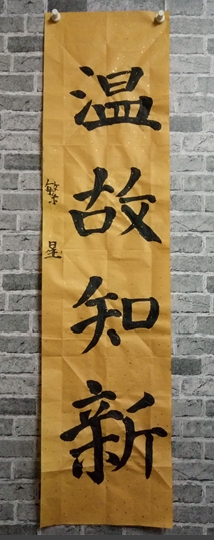 温故知新
繁星